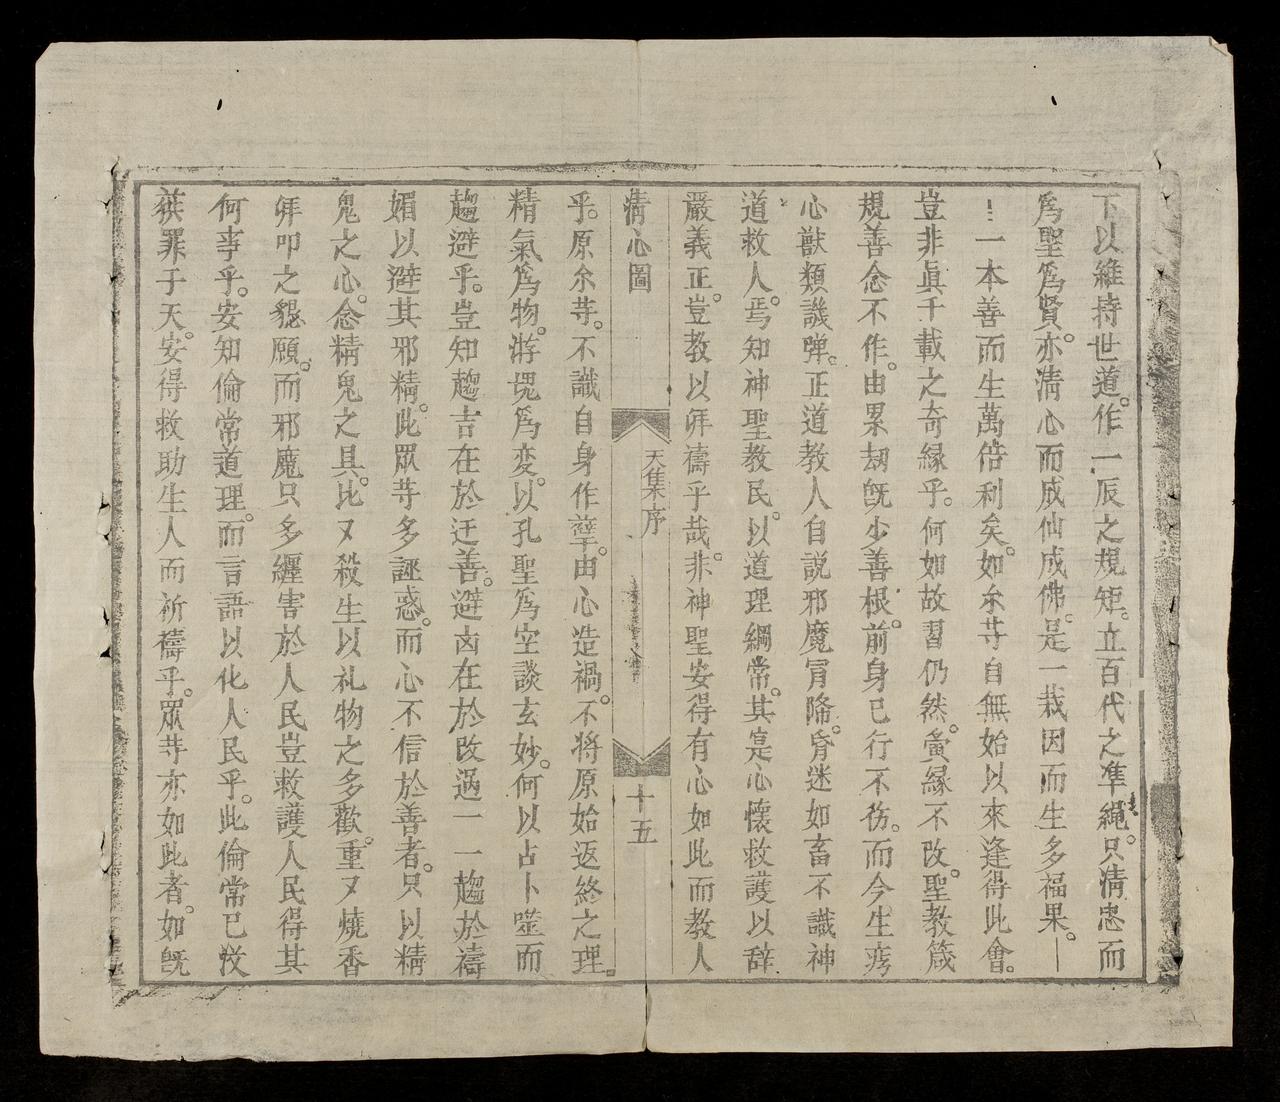 下以維持世道。作一辰之規矩。立百代之準繩。只清忠而
爲聖爲賢。亦清心而成仙成佛。是一栽因而生多福果。一
一本善而生萬倍利矣。如尒䓁自無始以來逢得此會。
豈非眞千載之奇縁乎。何如故習仍然。夤縁不改。聖教箴
規善念不作。由累刼旣少善根。前身已行不彷。而今生
心獸類譏弹。正道教人自説邪魔冐降。昏迷如畜不識神
道救人。焉知神聖教民。以道理綱常。其寔心懷救護以辞
嚴義正。豈教以拜禱乎哉。非神聖安得有心如此而教人
清心圖
天集序
十五
乎。原尒䓁。不識自身作孽。由心造禍。不將原始返終之理。
精氣爲物。游塊爲変。以孔聖爲空談玄妙。何以占卜噬而
趨避乎。豈知趨吉在於迁善。避凶在於改過一一趨於禱
媚以避其邪精。此眾䓁多誣惑。而心不信於善者。只以精
鬼之心。念精鬼之具。比又殺生以礼物之多歡。重又燒香
拜叩之懇願。而邪魔只多纒害於人民豈救護人民得其
何事乎。安知倫常道理。而言語以化人民乎。此倫常已没
獲罪于天。安得救助生人而祈禱乎。眾䓁亦如此者。如旣